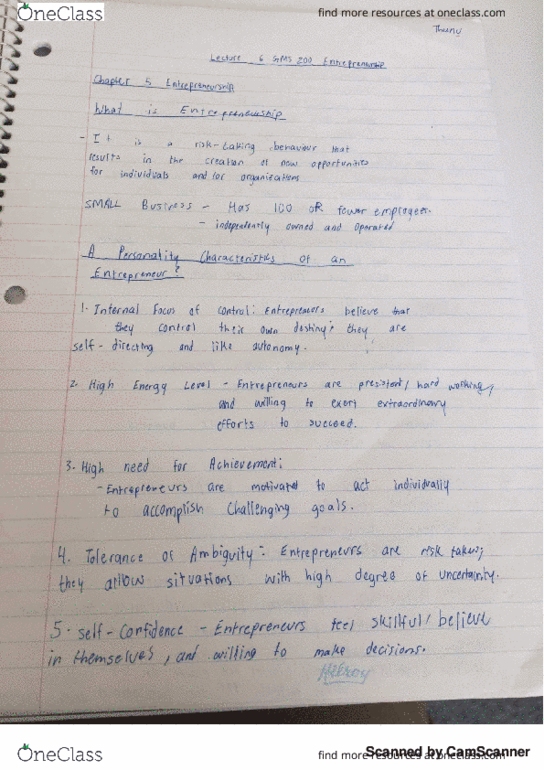 OneClass
find more resources at oneclass.com
Lecture 6 GMS 200 Entrepreneurship
Chapter 5 Entrepreneurship
What is Entrepreneurship
- It is a risk-taking behaviour that
results in the creation of new opportunities
for individuals and/or organizations
SMALL Business - Has 100 OR fewer employees.
- independently owned and operated
A Personality Characteristics of an
Entrepreneur?
1. Internal Focus of control: Entrepreneurs believe that
they control their own destiny; they are
self-directing and like autonomy.
2. High Energy Level - Entrepreneurs are presistent, hard working,
and willing to exert extraordinary
efforts to succeed.
3. High need for Achievement:
- Entrepreneurs are motivated to act individually
to accomplish challenging goals.
4. Tolerance of Ambiguity: Entrepreneurs are risk takers;
they allow situations with high degree of uncertainty.
5. self-Confidence - Entrepreneurs feel skillful, believe
in themselves, and willing to make decisions.
OneClass
find more resources at oneclass.com
Scanned by CamScanner